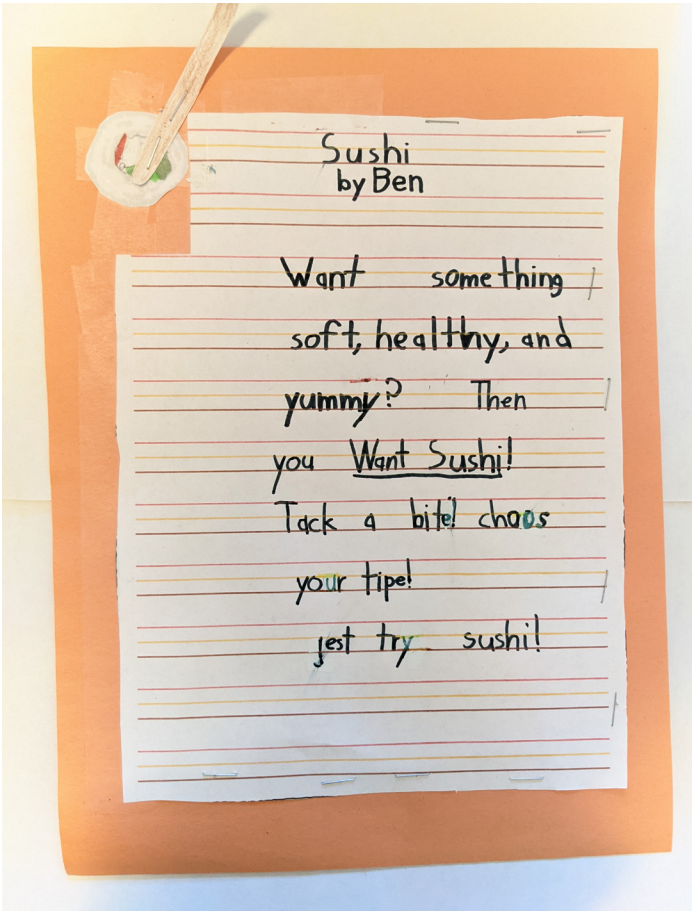 Sushi
by Ben
Want something
soft, healthy, and
yummy? Then
you Want Sushi!
Tack a bite! chaos
your tipe!
jest try sushi!